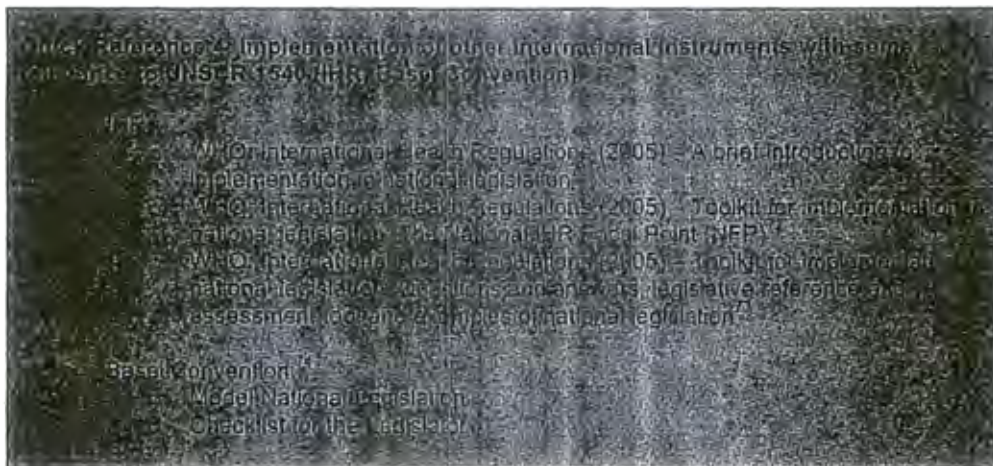 Quick Reference 4: Implementation of other International Instruments with some
relevance to UNSCR 1540 (IHR, Basel Convention)
IHR
WHO: International Health Regulations (2005) – A brief introduction to
implementation in national legislation
WHO: International Health Regulations (2005) – Toolkit for implementation in
national legislation: The National IHR Focal Point (NFP)
WHO: International Health Regulations (2005) – Toolkit for implementation in
national legislation: questions and answers, legislative reference and
assessment tool and examples of national legislation
Basel Convention
Model National Legislation
Checklist for the Legislator